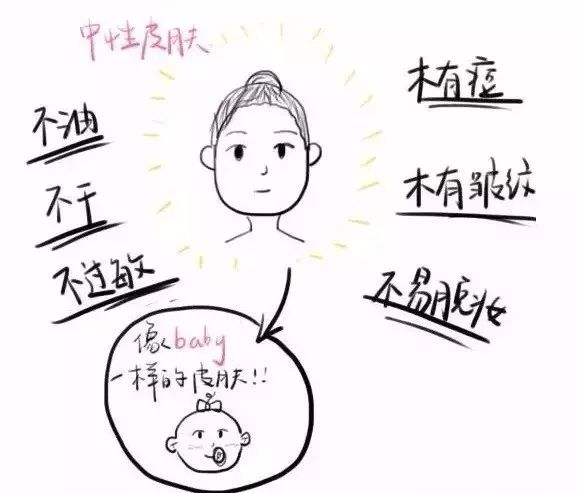 中性皮肤
不油
不干
不过敏
木有痘
木有皱纹
不易脱妆
像baby
一样的皮肤!!